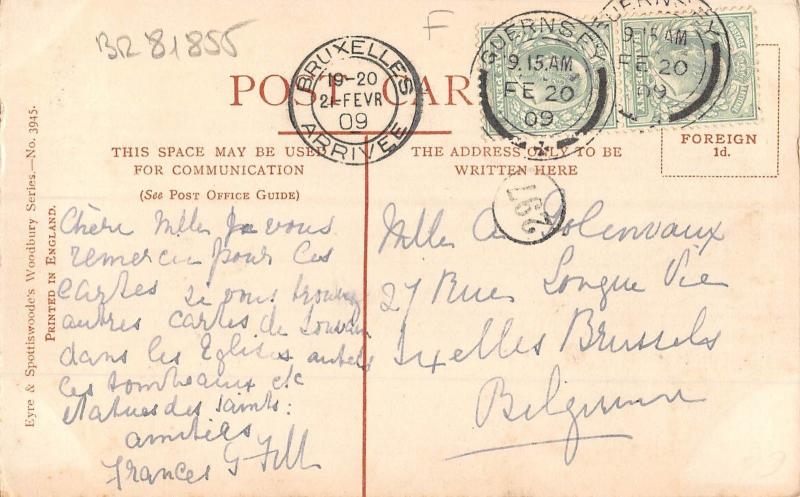 BR 81855
F
BRUXELLES
19-20
21 FEVR
09
ARRIVEE
GUERNSEY
9.15 AM
FE 20
09
GUERNSEY
9.15 AM
FE 20
09
POST CAR
THIS SPACE MAY BE USED
FOR COMMUNICATION
(See Post Office Guide)
THE ADDRESS ONLY TO BE
WRITTEN HERE
FOREIGN
1d.
297
Eyre & Spottiswoode's Woodbury Series.—No. 3945.
Printed in England.
Chère Mlle Je vous
remercie pour les
cartes si vous trouvez
autres cartes de Louvain
dans les Eglises autels
les tombeaux etc
statues des saints:
amitiés
Frances G
Mlle A
27 Rue Longue Vie
Ixelles Brussels
Belgium